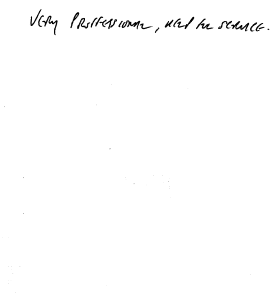 VERY PROFESSIONAL, for SERVICE.